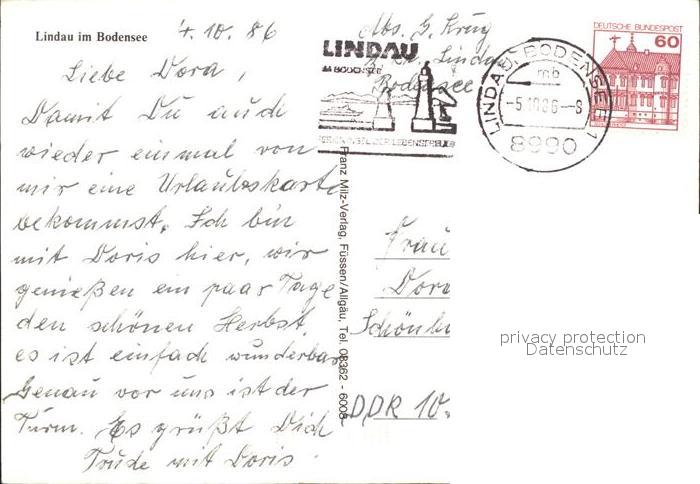 Lindau im Bodensee
4.10.86
Liebe Dora,
Damit Du auch
wieder einmal von
mir eine Urlaubskarte
bekommst. Ich bin
mit Doris hier, wir
genießen ein paar Tage
den schönen Herbst,
es ist einfach wunderbar
Genau vor uns ist der
Turm. Es grüßt Dich
Trude mit Doris
Abs. G. Krug
Lindau
Bodensee
LINDAU
IM BODENSEE
LINDAU, BODENSEE 1
mb
-5.10.86-8
8990
DEUTSCHE BUNDESPOST
60
Franz Milz-Verlag, Füssen/Allgäu, Tel. 08362 - 6008
Frau
Dora
DDR 10
privacy protection
Datenschutz